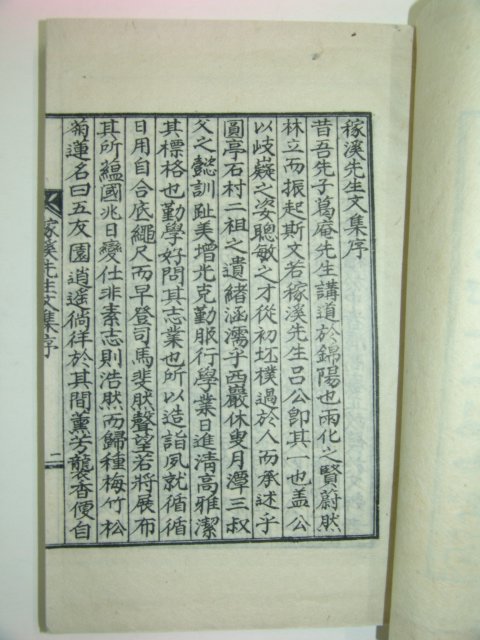 稼溪先生文集序
昔吾先子葛庵先生講道於錦陽也雨化之賢蔚然
林立而振起斯文若稼溪先生呂公卽其一也盖公
以岐嶷之姿聰敏之才從初坯樸過於人而承述乎
圓亭石村二祖之遺緖涵濡乎西巖休叟月潭三叔
父之懿訓趾美增光克勤服行學業日進淸高雅潔
其標格也勤學好問其志業也所以造詣夙就循循
日用自合底繩尺而早登司馬斐然聲望若將展布
其所蘊國兆日變仕非素志則浩然而歸種梅竹松
菊蓮名曰五友園逍遙徜徉於其間薰芳襲香便自
稼溪先生文集序
二